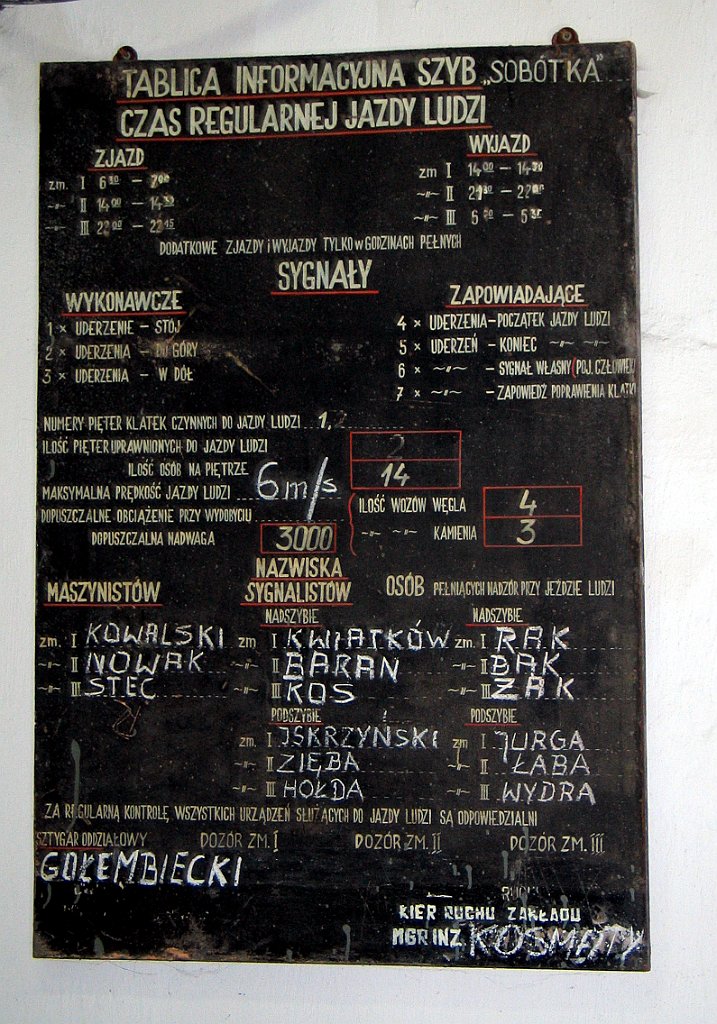 TABLICA INFORMACYJNA SZYB „SOBÓTKA”
CZAS REGULARNEJ JAZDY LUDZI
ZJAZD WYJAZD
zm. I 6³⁰ – 7⁰⁰ zm I 14⁰⁰ – 14³⁰
~„~ II 14⁰⁰ – 14³⁰ ~„~ II 21³⁰ – 22⁰⁰
~„~ III 22⁰⁰ – 22¹⁵ ~„~ III
DODATKOWE ZJAZDY i WYJAZDY TYLKO w GODZINACH PEŁNYCH
SYGNAŁY
WYKONAWCZE ZAPOWIADAJĄCE
1 × UDERZENIE – STÓJ 4 × UDERZENIA – POCZĄTEK JAZDY LUDZI
2 × UDERZENIA – DO GÓRY 5 × UDERZEŃ – KONIEC ~„~ ~„~
3 × UDERZENIA – W DÓŁ 6 × ~„~ – SYGNAŁ WŁASNY (POJ. CZŁOWIEK
7 × ~„~ – ZAPOWIEDŹ POPRAWIENIA KLATKI
NUMERY PIĘTER KLATEK CZYNNYCH DO JAZDY LUDZI 1, 2
ILOŚĆ PIĘTER UPRAWNIONYCH DO JAZDY LUDZI 2
ILOŚĆ OSÓB NA PIĘTRZE 14
MAKSYMALNA PRĘDKOŚĆ JAZDY LUDZI 6m/s
DOPUSZCZALNE OBCIĄŻENIE PRZY WYDOBYCIU ILOŚĆ WOZÓW WĘGLA 4
DOPUSZCZALNA NADWAGA 3000 ~„~ ~„~ KAMIENIA 3
NAZWISKA
MASZYNISTÓW SYGNALISTÓW OSÓB PEŁNIĄCYCH NADZÓR PRZY JEŹDZIE LUDZI
NADSZYBIE NADSZYBIE
zm. I KOWALSKI zm I KWIATKÓW zm. I RAK
~„~ II NOWAK ~„~ II BARAN ~„~ II BĄK
~„~ III STEC ~„~ III KOS ~„~ III ŻAK
PODSZYBIE PODSZYBIE
zm. I ISKRZYŃSKI zm I JURGA
~„~ II ZIĘBA ~„~ II ŁABA
~„~ III HOŁDA ~„~ III WYDRA
ZA REGULARNĄ KONTROLĘ, WSZYSTKICH URZĄDZEŃ SŁUŻĄCYCH DO JAZDY LUDZI SĄ ODPOWIEDZIALNI
SZTYGAR ODDZIAŁOWY DOZÓR ZM. I DOZÓR ZM. II DOZÓR ZM. III
GOŁEMBIECKI
KIER RUCHU ZAKŁADU
MGR INŻ KOSMETTY